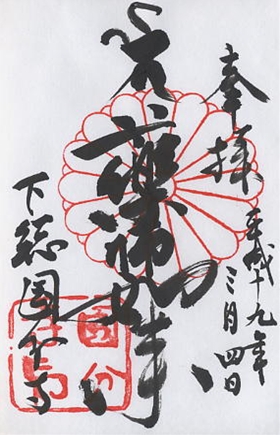 奉拝
平成十九年
三月四日
薬師如来
下総國分寺
國分
寺印